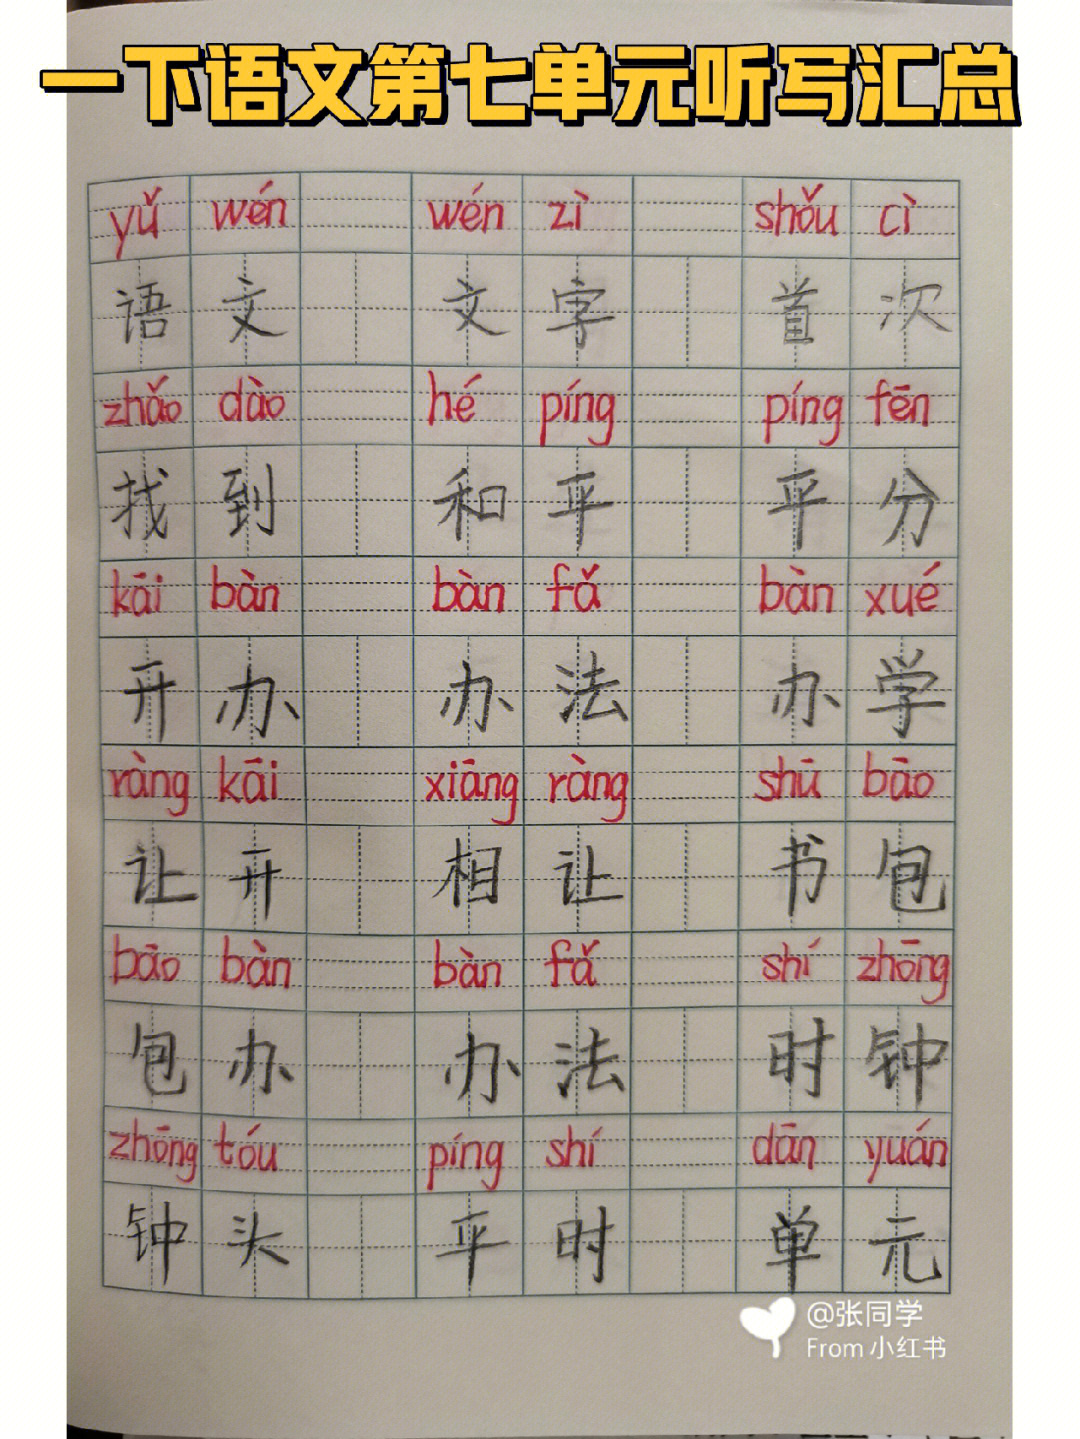 一下语文第七单元听写汇总
yǔ wén wén zì shǒu cì
语文 文字 首次
zhǎo dào hé píng píng fēn
找到 和平 平分
kāi bàn bàn fǎ bàn xué
开办 办法 办学
ràng kāi xiāng ràng shū bāo
让开 相让 书包
bāo bàn bàn fǎ shí zhōng
包办 办法 时钟
zhōng tóu píng shí dān yuán
钟头 平时 单元
@张同学
From 小红书